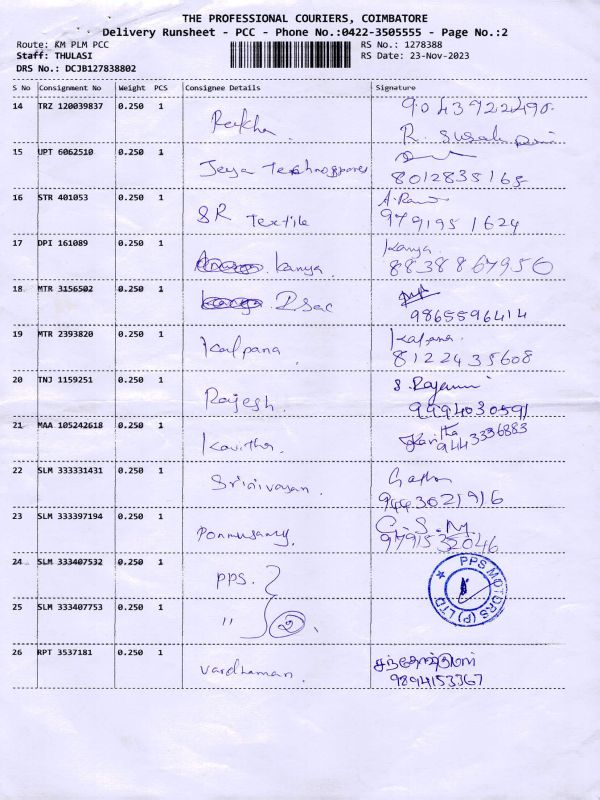 THE PROFESSIONAL COURIERS, COIMBATORE
Delivery Runsheet - PCC - Phone No.:0422-3505555 - Page No.:2
Route: KM PLM PCC
RS No.: 1278388
Staff: THULASI
RS Date: 23-Nov-2023
DRS No.: DCJB127838802
S No Consignment No Weight PCS Consignee Details Signature
14 TRZ 120039837 0.250 1 Rekha 9043922490
R.
15 UPT 6062510 0.250 1 Jeya
8012835165
16 STR 401053 0.250 1 SR Textile
9791951624
17 DPI 161089 0.250 1 kanya. Kanya.
8838867950
18 MTR 3156502 0.250 1
9865596414
19 MTR 2393820 0.250 1 Kalpana Kalpana
8122435608
20 TNJ 1159251 0.250 1 Rajesh.
9994030591
21 MAA 105242618 0.250 1 Kavitha. Kavitha
9443336883
22 SLM 333331431 0.250 1 Srinivasan.
9443021916
23 SLM 333397194 0.250 1 Ponnusamy. C.S.M.
9791532046
24 SLM 333407532 0.250 1 PPS.
PPS MOTORS (P) LTD
25 SLM 333407753 0.250 1 " 2
26 RPT 3537181 0.250 1 Vardhaman.
9894153367